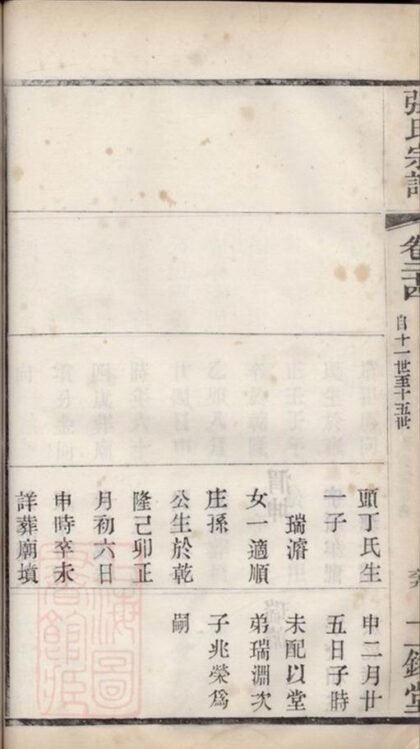 張氏宗譜
卷
自十一世至十五世
堂
頭丁氏生
一子
瑞濬
女一適順
庄孫
公生於乾
隆己卯正
月初六日
申時卒未
詳葬廟墳
申二月廿
五日子時
未配以堂
弟瑞淵次
子兆榮為
嗣
上海圖
書館藏